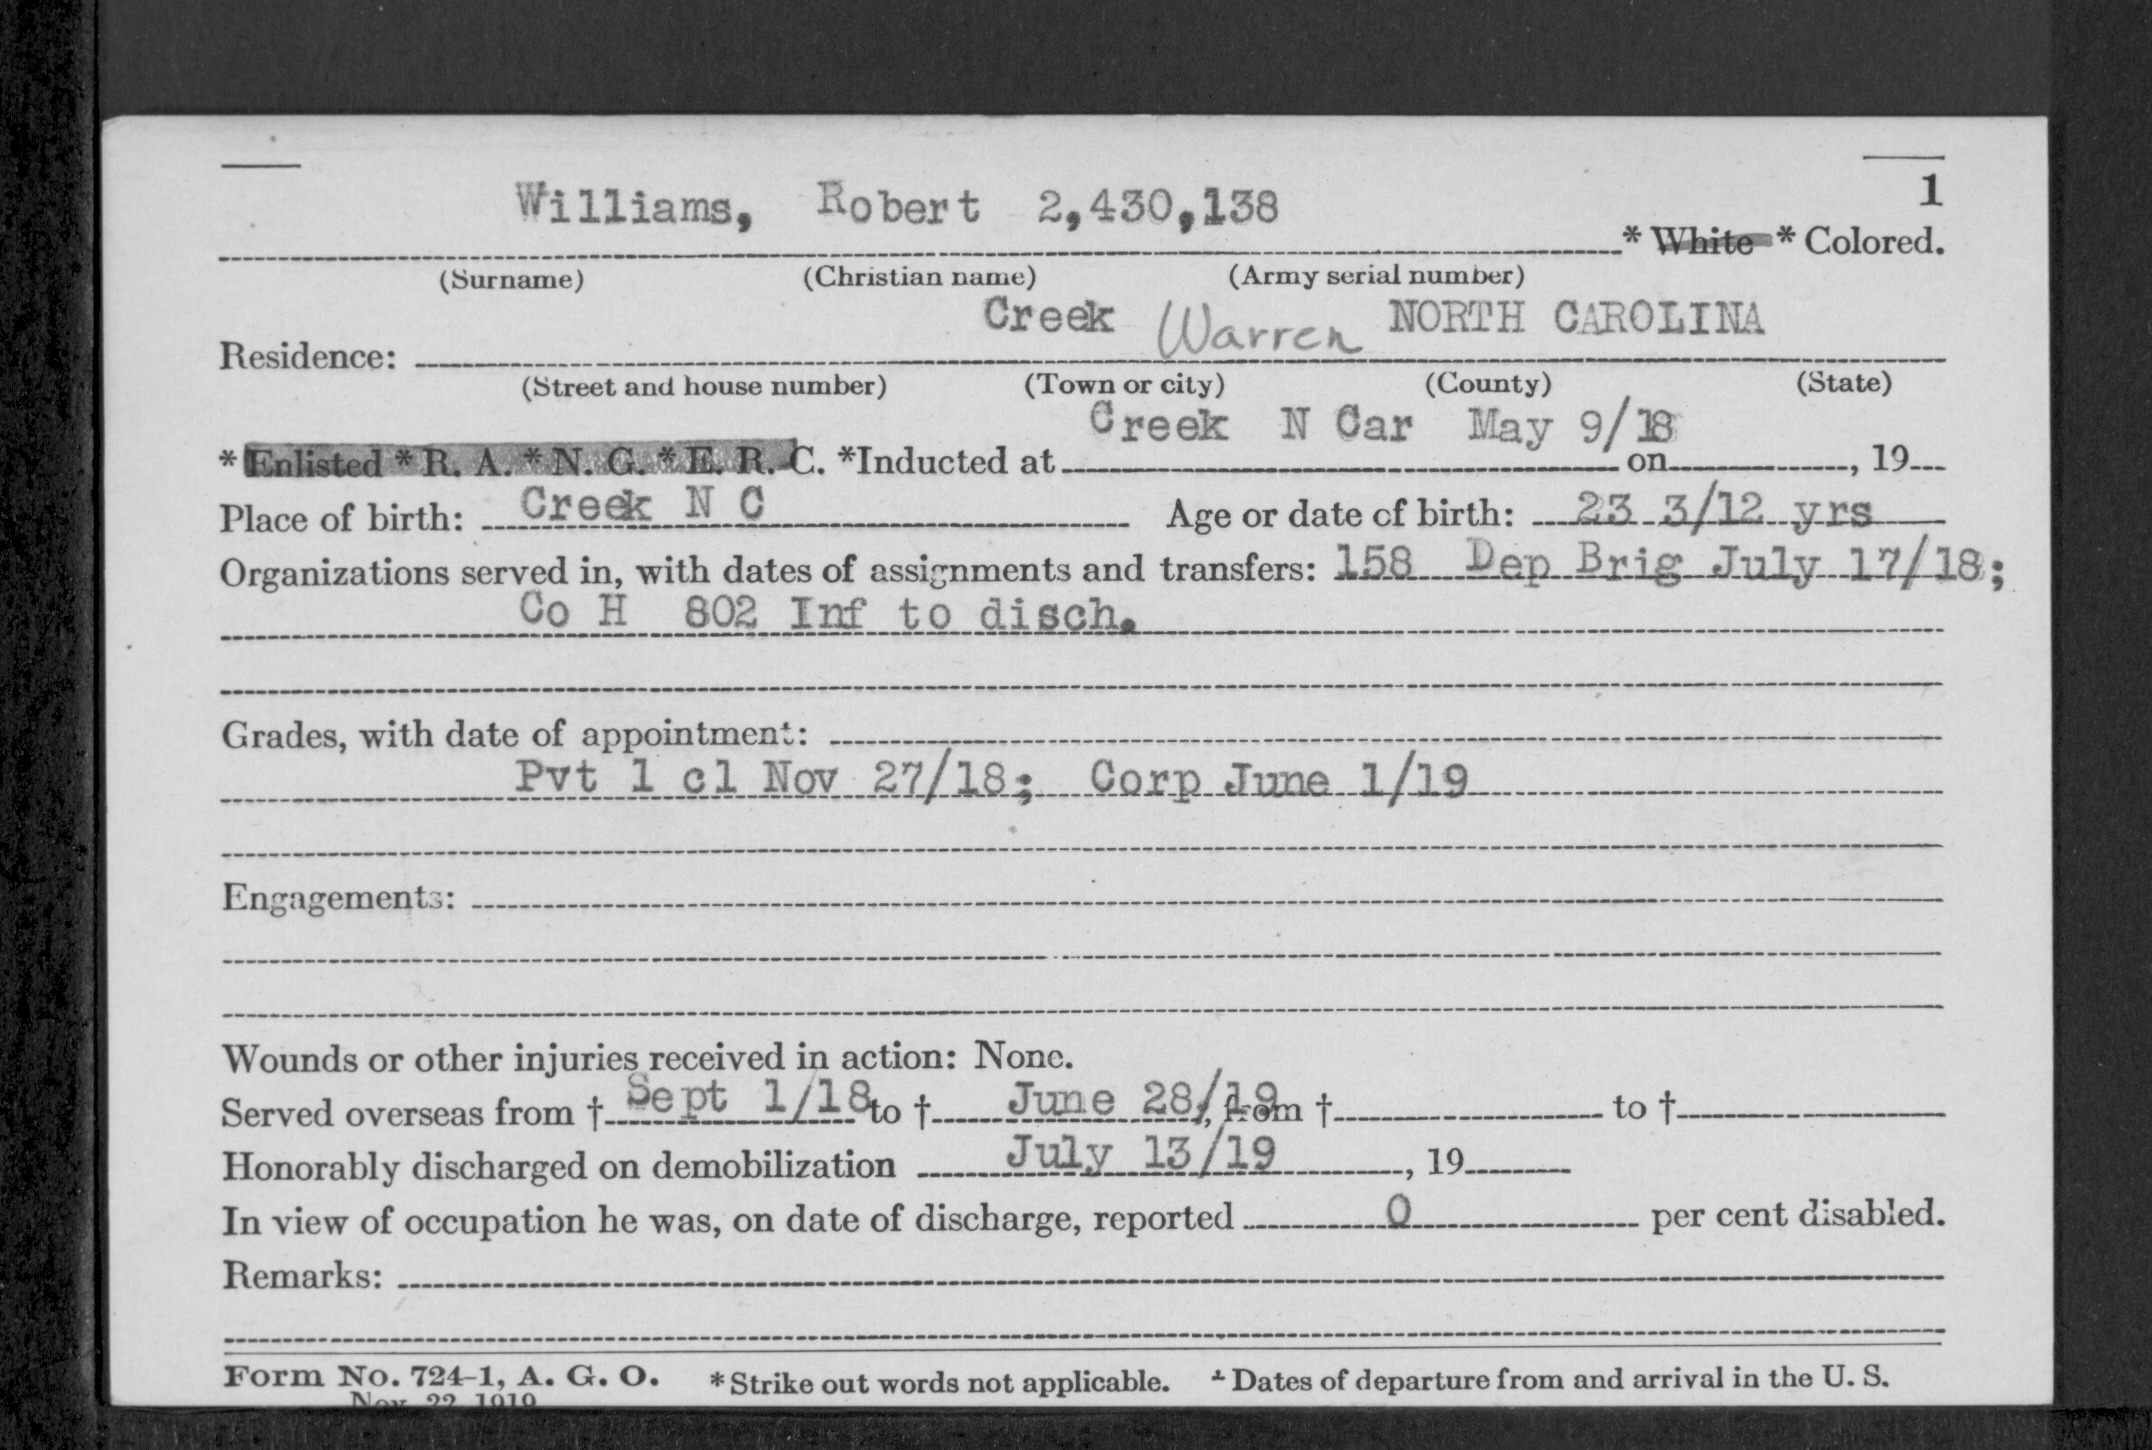 1
Williams, Robert 2,430,138
* White * Colored.
(Surname) (Christian name) (Army serial number)
Creek Warren NORTH CAROLINA
Residence:
(Street and house number) (Town or city) (County) (State)
Creek N Car May 9/18
* Enlisted * R. A. * N. G. * E. R. C. *Inducted at on , 19
Place of birth: Creek N C Age or date of birth: 23 3/12 yrs
Organizations served in, with dates of assignments and transfers: 158 Dep Brig July 17/18;
Co H 802 Inf to disch.
Grades, with date of appointment:
Pvt 1 cl Nov 27/18; Corp June 1/19
Engagements:
Wounds or other injuries received in action: None.
Served overseas from † Sept 1/18 to † June 28/19, from † to †
Honorably discharged on demobilization July 13/19 , 19
In view of occupation he was, on date of discharge, reported 0 per cent disabled.
Remarks:
Form No. 724-1, A. G. O. * Strike out words not applicable. † Dates of departure from and arrival in the U. S.
Nov. 22, 1919